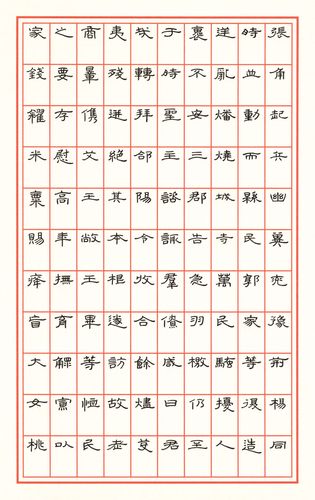 張角起兵幽冀兗豫荊楊同
時並動而縣民郭家等復造
逆亂燔燒城寺萬民騷擾人
裹不安三郡告急羽檄仍至
于時聖主諮諏群僚咸曰君
哉轉拜郃陽令收合餘燼芟
夷殘迸絕其本根遂訪故老
商量儁艾王敞王畢等恤民
之要存慰高年撫育鰥寡以
家錢糴米粟賜癃盲大女桃